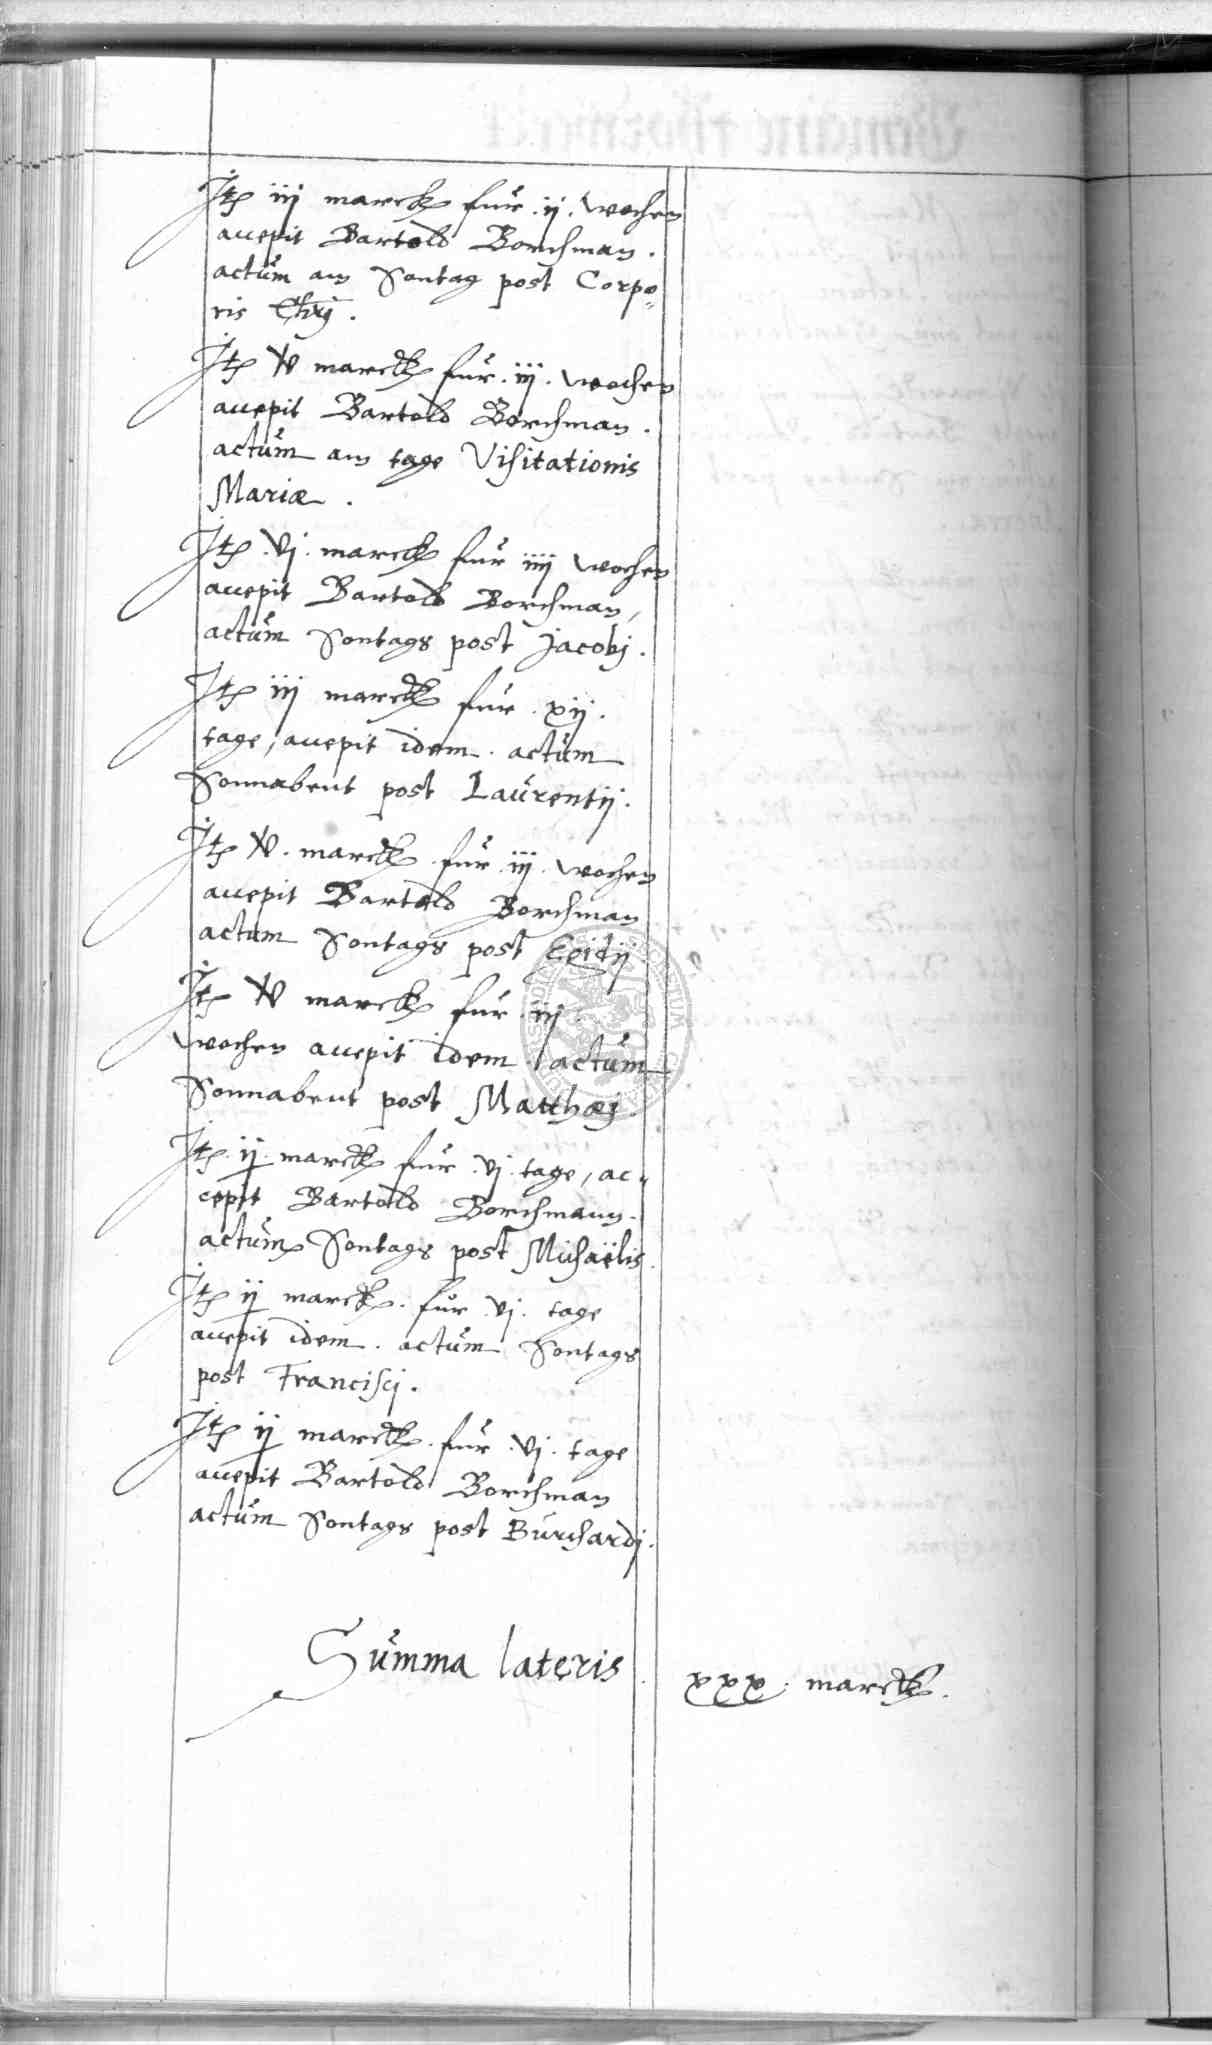 Itē iij marck fur .ij. wochen
accepit Bartold Borchman.
actum am Sontag post Corpo=
ris Chrī.
Itē v marck fur .iij. wochen
accepit Bartold Borchman.
actum am tage Visitationis
Mariæ.
Itē .vj. marck fur iiij wochen
accepit Bartold Borchman,
actum Sontags post Jacobj.
Itē iij marck fur .xij.
tage, accepit idem. actum
Sonnabent post Laurentij.
Itē v. marck fur .iij. wochen
accepit Bartold Borchman
actum Sontags post Egidij
Itē v marck fur .iij.
wochen accepit idem. actum
Sonnabent post Matthæj.
Itē ij marck fur .vj. tage, ac=
cepit Bartold Borchmann.
actum Sontags post Michaëlis.
Itē ij marck. fur .vj. tage
accepit idem. actum Sontags
post Francisci.
Itē ij marck. fur .vj. tage
accepit Bartold Borchman
actum Sontags post Burchardj.
Summa lateris. xxx. marck.